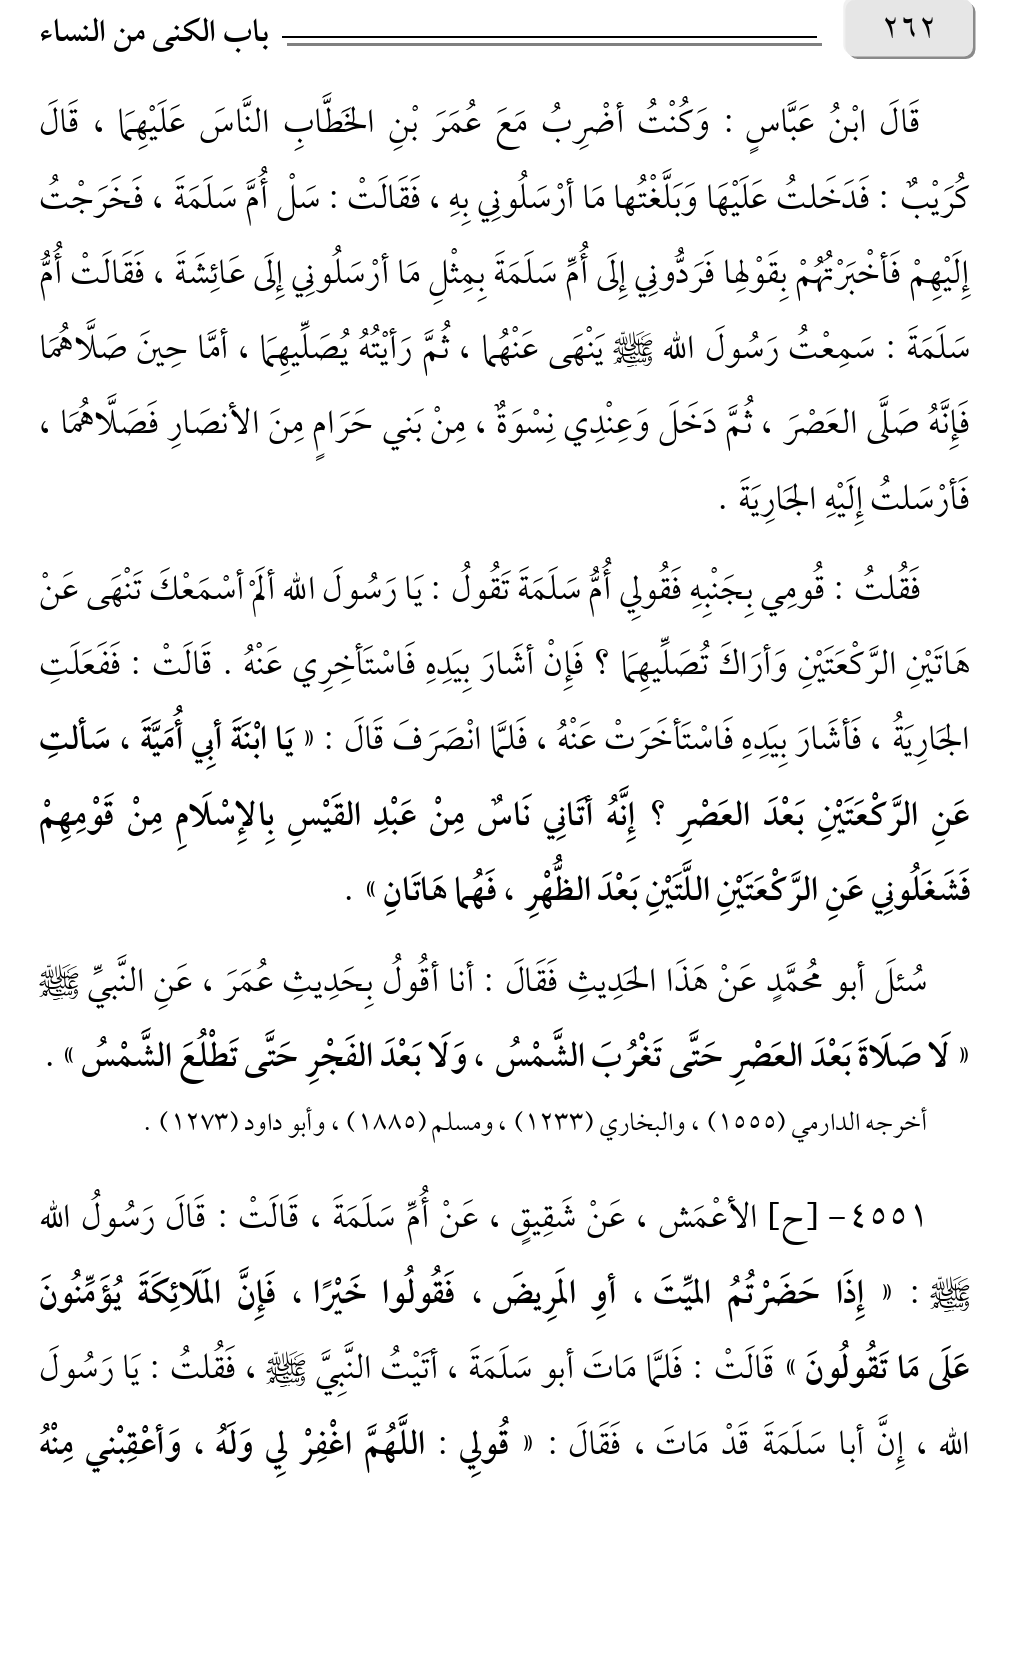 ٢٦٢ باب الكنى من النساء
قَالَ ابْنُ عَبَّاسٍ : وَكُنْتُ أضْرِبُ مَعَ عُمَرَ بْنِ الخَطَّابِ النَّاسَ عَلَيْهِمَا ، قَالَ
كُرَيْبٌ : فَدَخَلتُ عَلَيْهَا وَبَلَّغْتُها مَا أرْسَلُوني بِهِ ، فَقَالَتْ : سَلْ أُمَّ سَلَمَةَ ، فَخَرَجْتُ
إِلَيْهِمْ فَأخْبَرْتُهُمْ بِقَوْلِها فَرَدُّونِي إِلَى أُمِّ سَلَمَةَ بِمِثْلِ مَا أرْسَلُونِي إِلَى عَائِشَةَ ، فَقَالَتْ أُمُّ
سَلَمَةَ : سَمِعْتُ رَسُولَ الله ﷺ يَنْهَى عَنْهُما ، ثُمَّ رَأيْتُهُ يُصَلِّيهِمَا ، أمَّا حِينَ صَلَّاهُمَا
فَإِنَّهُ صَلَّى العَصْرَ ، ثُمَّ دَخَلَ وَعِنْدِي نِسْوَةٌ ، مِنْ بَني حَرَامٍ مِنَ الأنصَارِ فَصَلَّاهُمَا ،
فَأرْسَلتُ إِلَيْهِ الجَارِيَةَ .
فَقُلتُ : قُومِي بِجَنْبِهِ فَقُولِي أُمُّ سَلَمَةَ تَقُولُ : يَا رَسُولَ الله ألَمْ أسْمَعْكَ تَنْهَى عَنْ
هَاتَيْنِ الرَّكْعَتَيْنِ وَأرَاكَ تُصَلِّيهِمَا ؟ فَإِنْ أشَارَ بِيَدِهِ فَاسْتَأخِرِي عَنْهُ . قَالَتْ : فَفَعَلَتِ
الجَارِيَةُ ، فَأشَارَ بِيَدِهِ فَاسْتَأخَرَتْ عَنْهُ ، فَلمَّا انْصَرَفَ قَالَ : « يَا ابْنَةَ أبِي أُمَيَّةَ ، سَألتِ
عَنِ الرَّكْعَتَيْنِ بَعْدَ العَصْرِ ؟ إِنَّهُ أتَانِي نَاسٌ مِنْ عَبْدِ القَيْسِ بِالإِسْلَامِ مِنْ قَوْمِهِمْ
فَشَغَلُونِي عَنِ الرَّكْعَتَيْنِ اللَّتَيْنِ بَعْدَ الظُّهْرِ ، فَهُما هَاتَانِ » .
سُئلَ أبو مُحمَّدٍ عَنْ هَذَا الحَدِيثِ فَقَالَ : أنا أقُولُ بِحَدِيثِ عُمَرَ ، عَنِ النَّبيِّ ﷺ
« لَا صَلَاةَ بَعْدَ العَصْرِ حَتَّى تَغْرُبَ الشَّمْسُ ، وَلَا بَعْدَ الفَجْرِ حَتَّى تَطْلُعَ الشَّمْسُ » .
أخرجه الدارمي (١٥٥٥) ، والبخاري (١٢٣٣) ، ومسلم (١٨٨٥) ، وأبو داود (١٢٧٣) .
٤٥٥١- [ح] الأعْمَش ، عَنْ شَقِيقٍ ، عَنْ أُمِّ سَلَمَةَ ، قَالَتْ : قَالَ رَسُولُ الله
ﷺ : « إِذَا حَضَرْتُمُ الميِّتَ ، أوِ المَرِيضَ ، فَقُولُوا خَيْرًا ، فَإِنَّ المَلَائِكَةَ يُؤَمِّنُونَ
عَلَى مَا تَقُولُونَ » قَالَتْ : فَلمَّا مَاتَ أبو سَلَمَةَ ، أتَيْتُ النَّبِيَّ ﷺ ، فَقُلتُ : يَا رَسُولَ
الله ، إِنَّ أبا سَلَمَةَ قَدْ مَاتَ ، فَقَالَ : « قُولِي : اللَّهُمَّ اغْفِرْ لِي وَلَهُ ، وَأعْقِبْني مِنْهُ